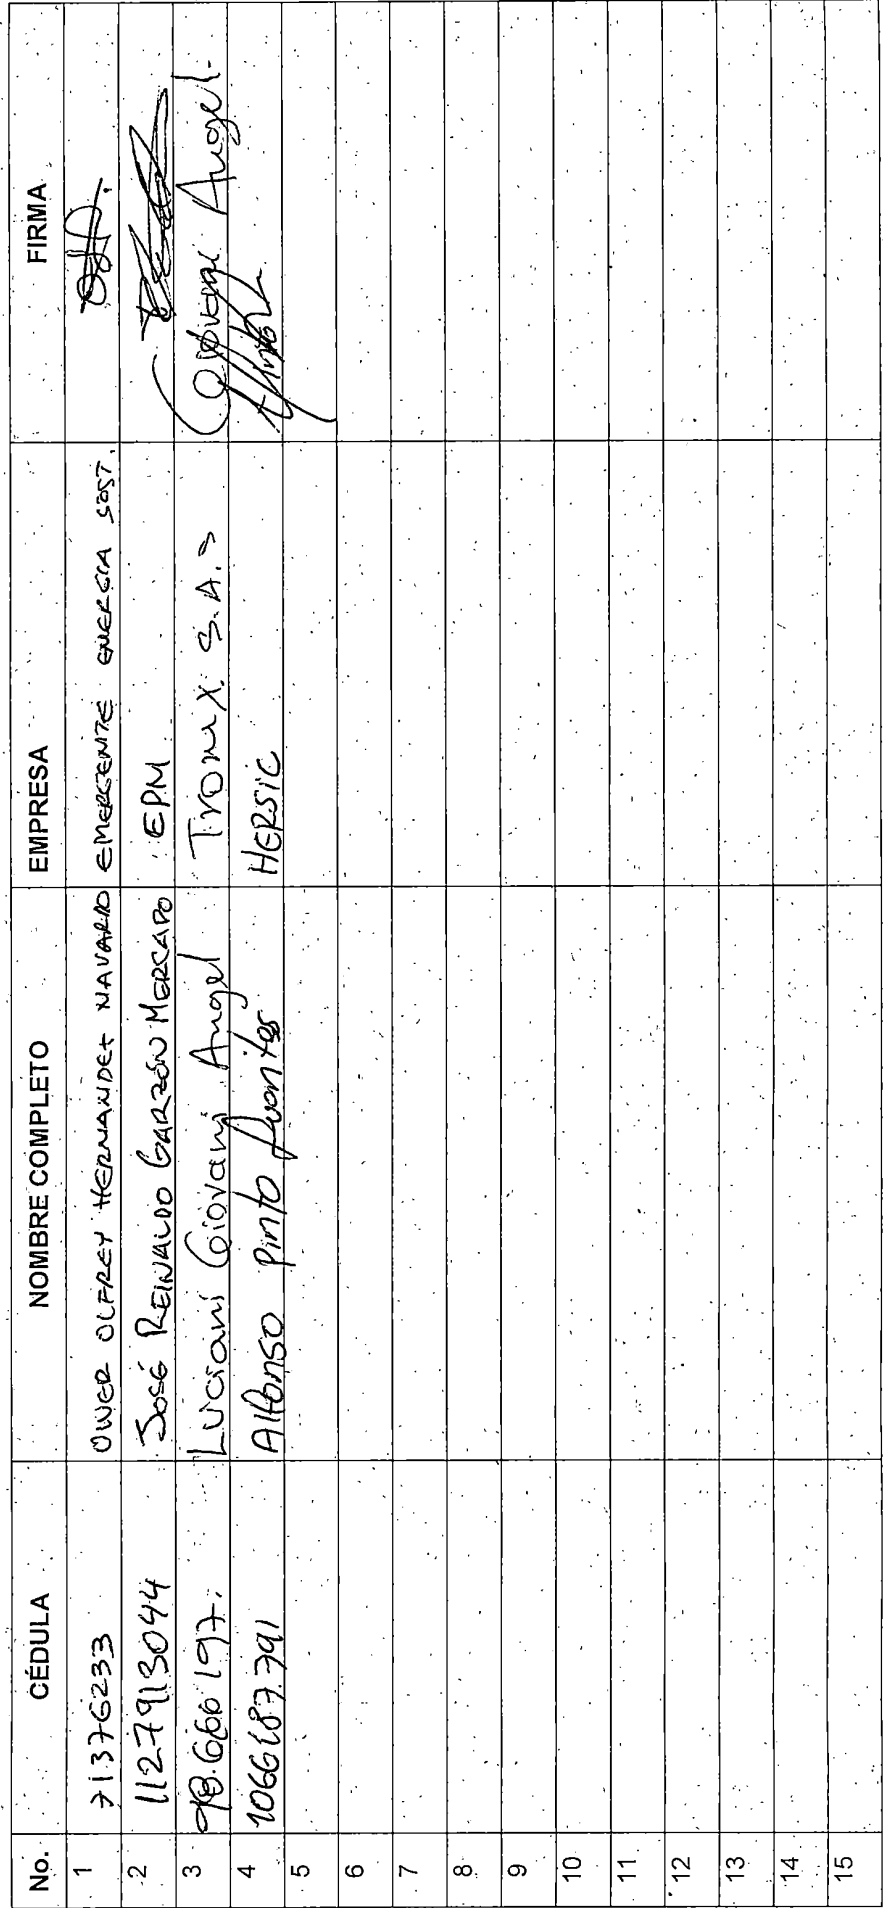 No. CÉDULA NOMBRE COMPLETO EMPRESA FIRMA
1 71376233 OWER OLFREY HERNANDEZ NAVARRO EMERGENTE ENERGIA SOST.
2 1127913044 JOSÉ REINALDO GARZÓN MERCADO EPM
3 98.660197. Luciani Giovani Angel Tronix S.A.S Giovani Angel.
4 1066187791 Alfonso Pinto fuentes HERSIC
5
6
7
8
9
10
11
12
13
14
15